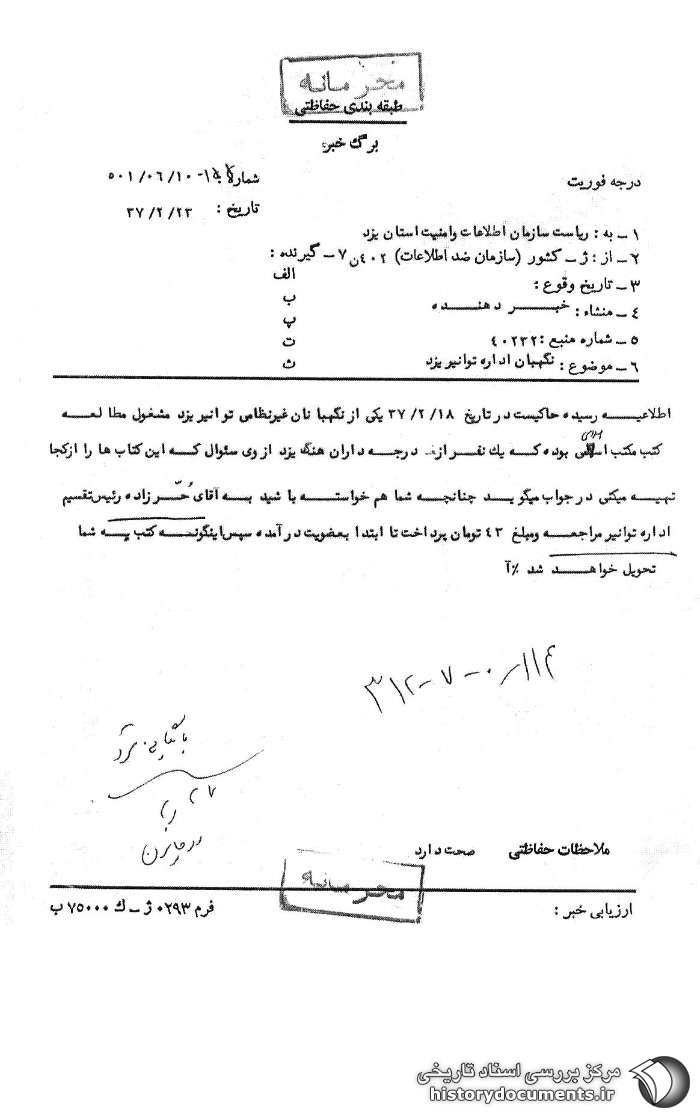 محرمانه
طبقه بندی حفاظتی
برگ خبر
درجه فوریت
شماره ۵۰۱/۰۶/۱۰-
تاریخ : ۳۷/۲/۲۳
۱ ـ به : ریاست سازمان اطلاعات وامنیت استان یزد
۲ ـ از : ژ ـ کشور (سازمان ضد اطلاعات) ۴۰۲ن ۷ ـ گیرنده :
۳ ـ تاریخ وقوع : الف
۴ ـ منشاء : خبــر دهنــده ب
پ
۵ ـ شماره منبع : ۴۰۲۳۲ ت
۶ ـ موضوع : نگهبان اداره توانیر یزد ث
اطلاعیــه رسیده حاکیست در تاریخ ۳۷/۲/۱۸ یکی از نگهبا نان غیرنظامی توانیر یزد مشغول مطا لعــه
کتب مکتب اسلامی بوده کــه یك نفر از درجــه داران هنگ یزد از وی سئوال کــه این کتاب ها را ازکجا
تهیــه میکنی در جواب میگو یــد چنانچــه شما هم خواستــه با شید بــه آقای حُــر زاده رئیس تقسیم
اداره توانیر مراجعــه ومبلغ ۴۳ تومان پرداخت تا ابتدا بعضویت در آمده سپس اینگونــه کتب بــه شما
تحویل خواهــد شد ٪آ
۳۱۲-۷-۰
بایگانی شود
ملاحظات حفاظتی صحت دارد
محرمانه
ارزیابی خبر :
فرم ۰۲۹۳ ژ ـ ك ۷۵۰۰۰ ب
مرکز بررسی اسناد تاریخی
historydocuments.ir